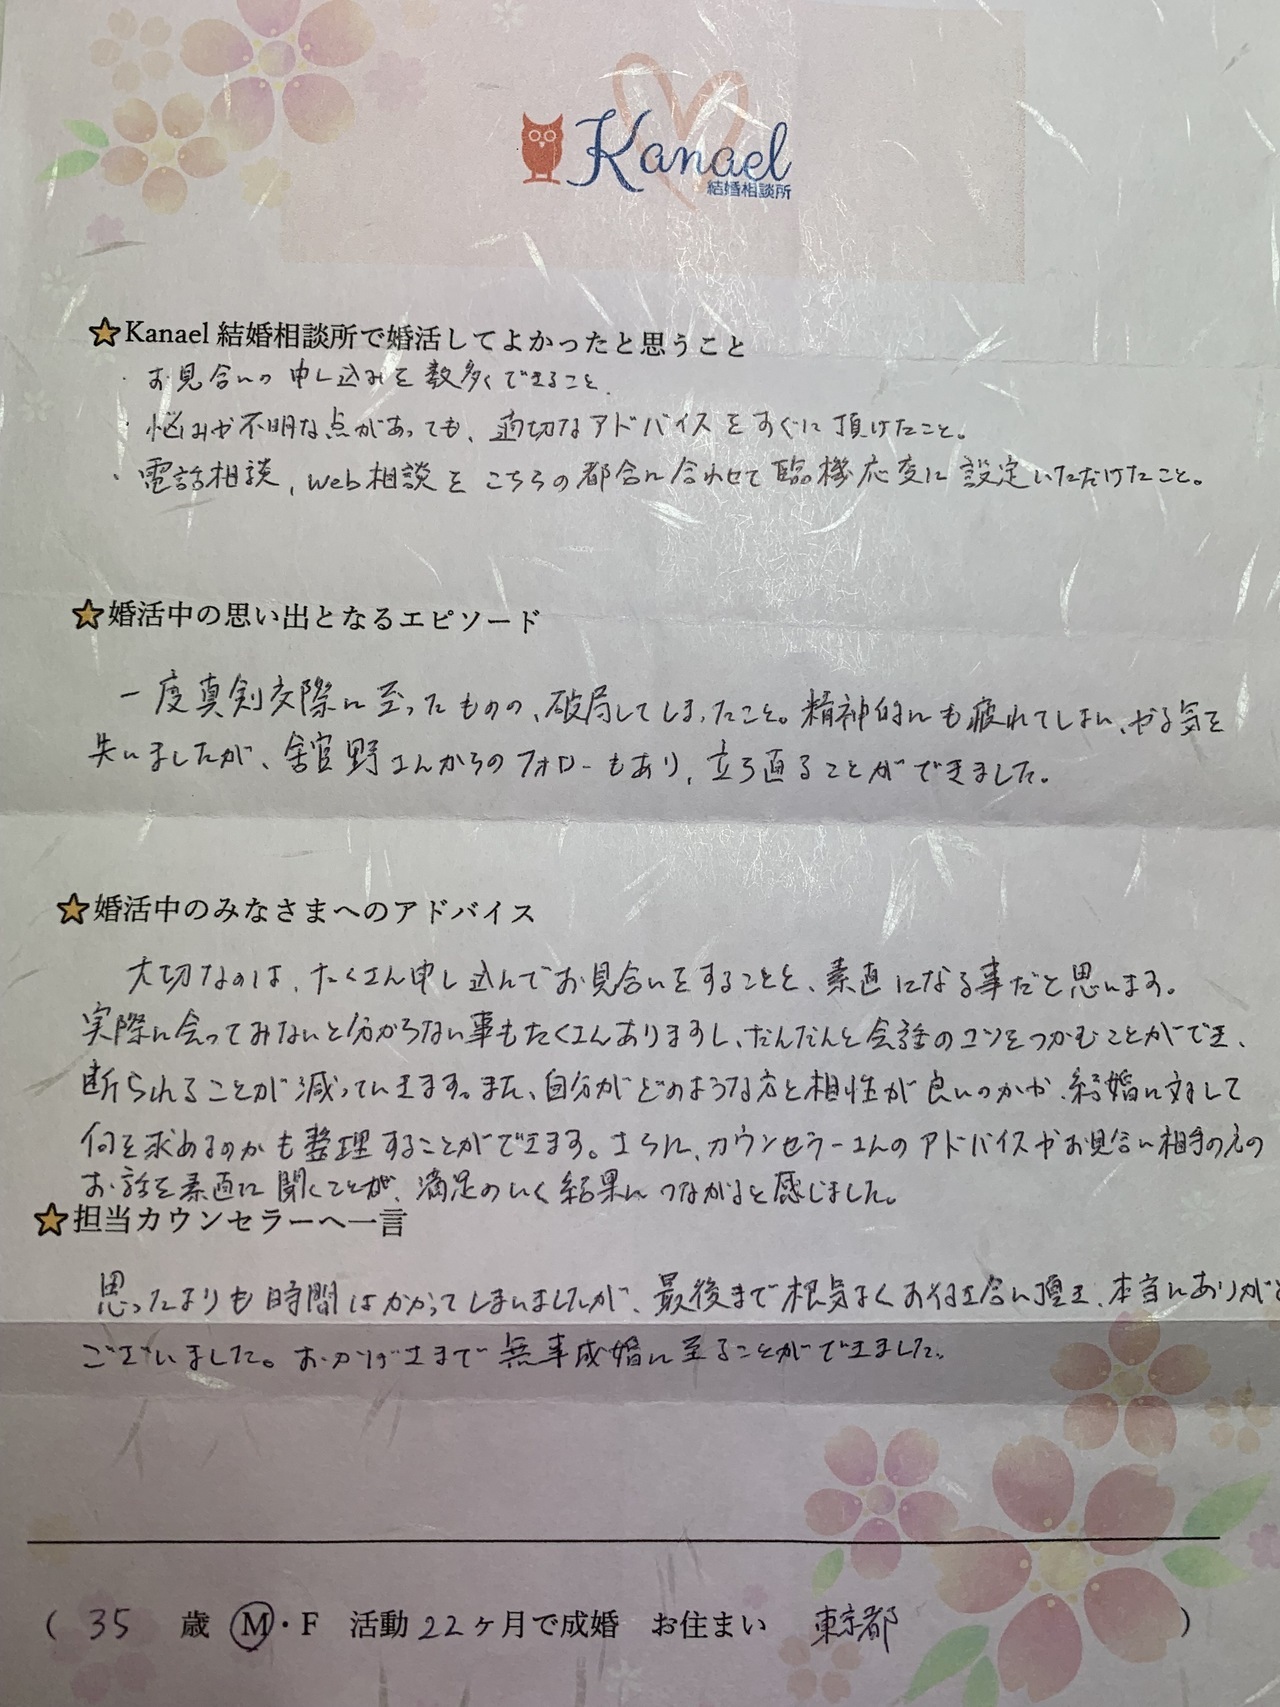 Kanael
結婚相談所
Kanael 結婚相談所で婚活してよかったと思うこと
・お見合いの申し込みを数多くできること。
・悩みや不明な点があっても、適切なアドバイスをすぐに頂けたこと。
・電話相談、web相談をこちらの都合に合わせて臨機応変に設定いただけたこと。
婚活中の思い出となるエピソード
一度真剣交際に至ったものの、破局してしまったこと。精神的にも疲れてしまい、やる気を
失いましたが、舘野さんからのフォローもあり、立ち直ることができました。
婚活中のみなさまへのアドバイス
大切なのは、たくさん申し込んでお見合いをすることと、素直になる事だと思います。
実際に会ってみないと分からない事もたくさんありますし、だんだんと会話のコツをつかむことができ、
断られることが減っていきます。また、自分がどのような方と相性が良いのかや、結婚に対して
何を求めるのかも整理することができます。さらに、カウンセラーさんのアドバイスやお見合い相手の方の
お話を素直に聞くことが、満足のいく結果につながると感じました。
担当カウンセラーへ一言
思ったよりも時間はかかってしまいましたが、最後まで根気よくお付き合い頂き、本当にありがと
ございました。おかげさまで無事成婚に至ることができました。
( 35 歳 M・F 活動 22ヶ月で成婚 お住まい 東京都 )